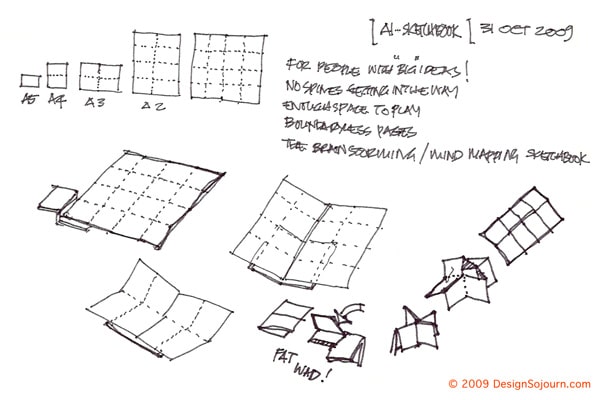 [A1-SKETCHBOOK] 31 OCT 2009
FOR PEOPLE WITH "BIG" IDEAS!
NO SPINES GETTING IN THE WAY
ENOUGH SPACE TO PLAY
BOUNDARYLESS PAGES
THE BRAINSTORMING / MIND MAPPING SKETCHBOOK
A5 A4 A3 A2
FAT
WAD!
© 2009 DesignSojourn.com